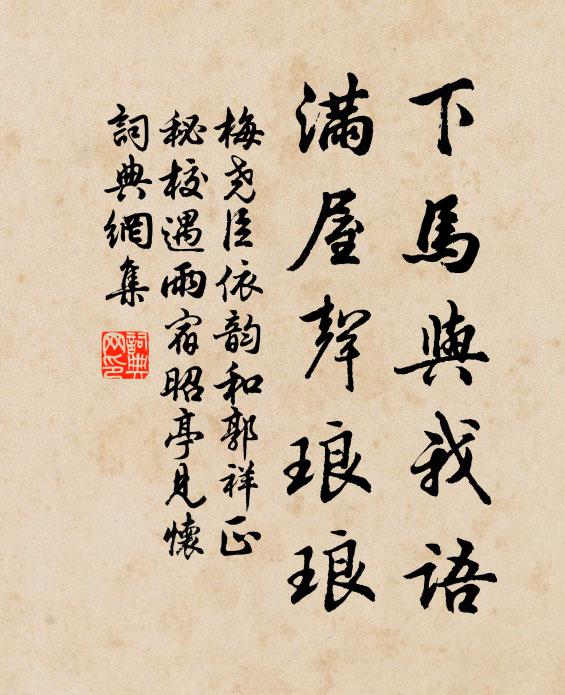 下馬與我語
滿屋聲琅琅
梅堯臣依韵和郭祥正
秘校遇雨宿昭亭見懷
詞典網集
詞典网印